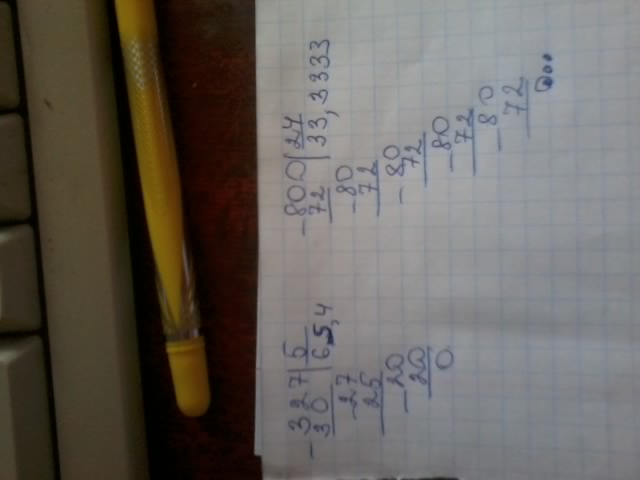 -327|5
30 |65,4
-27
25
-20
20
0
-800|24
72 |33,3333
-80
72
-80
72
-80
72
-80
72
...